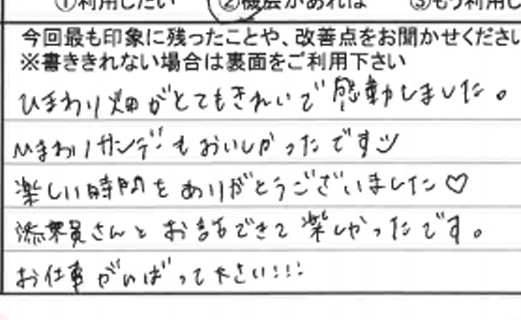 ①利用したい ②機会があれば ③もう利用し
今回最も印象に残ったことや、改善点をお聞かせくださ
※書ききれない場合は裏面をご利用下さい
ひまわり畑がとてもきれいで感動しました。
ひまわりサンデーもおいしかったです
楽しい時間をありがとうございました♡
添乗員さんとお話できて楽しかったです。
お仕事がんばって下さい!!!